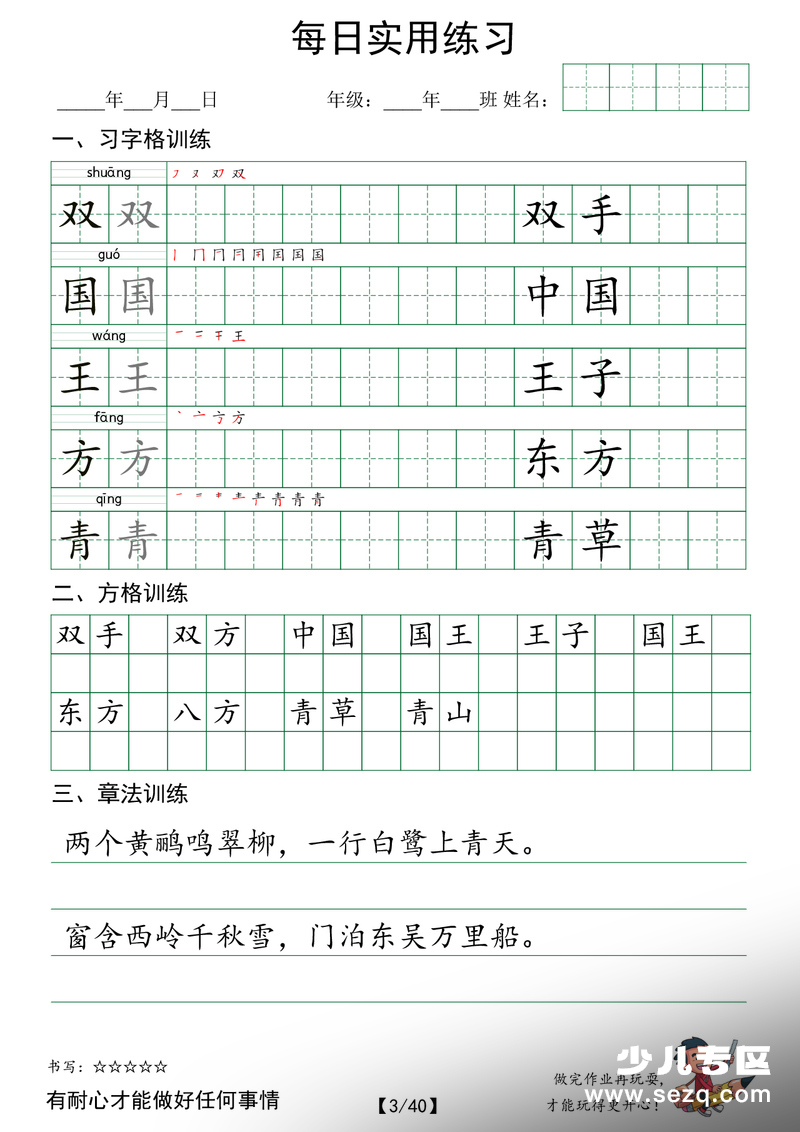 每日实用练习
_____年___月___日 年级：____年____班 姓名：
一、习字格训练
shuāng
双 双 双 手
guó
国 国 中 国
wáng
王 王 王 子
fāng
方 方 东 方
qīng
青 青 青 草
二、方格训练
双手 双方 中国 国王 王子 国王
东方 八方 青草 青山
三、章法训练
两个黄鹂鸣翠柳，一行白鹭上青天。
窗含西岭千秋雪，门泊东吴万里船。
书写：☆☆☆☆☆
有耐心才能做好任何事情
【3/40】
做完作业再玩耍，
才能玩得更开心！
少儿专区
www.sezq.com